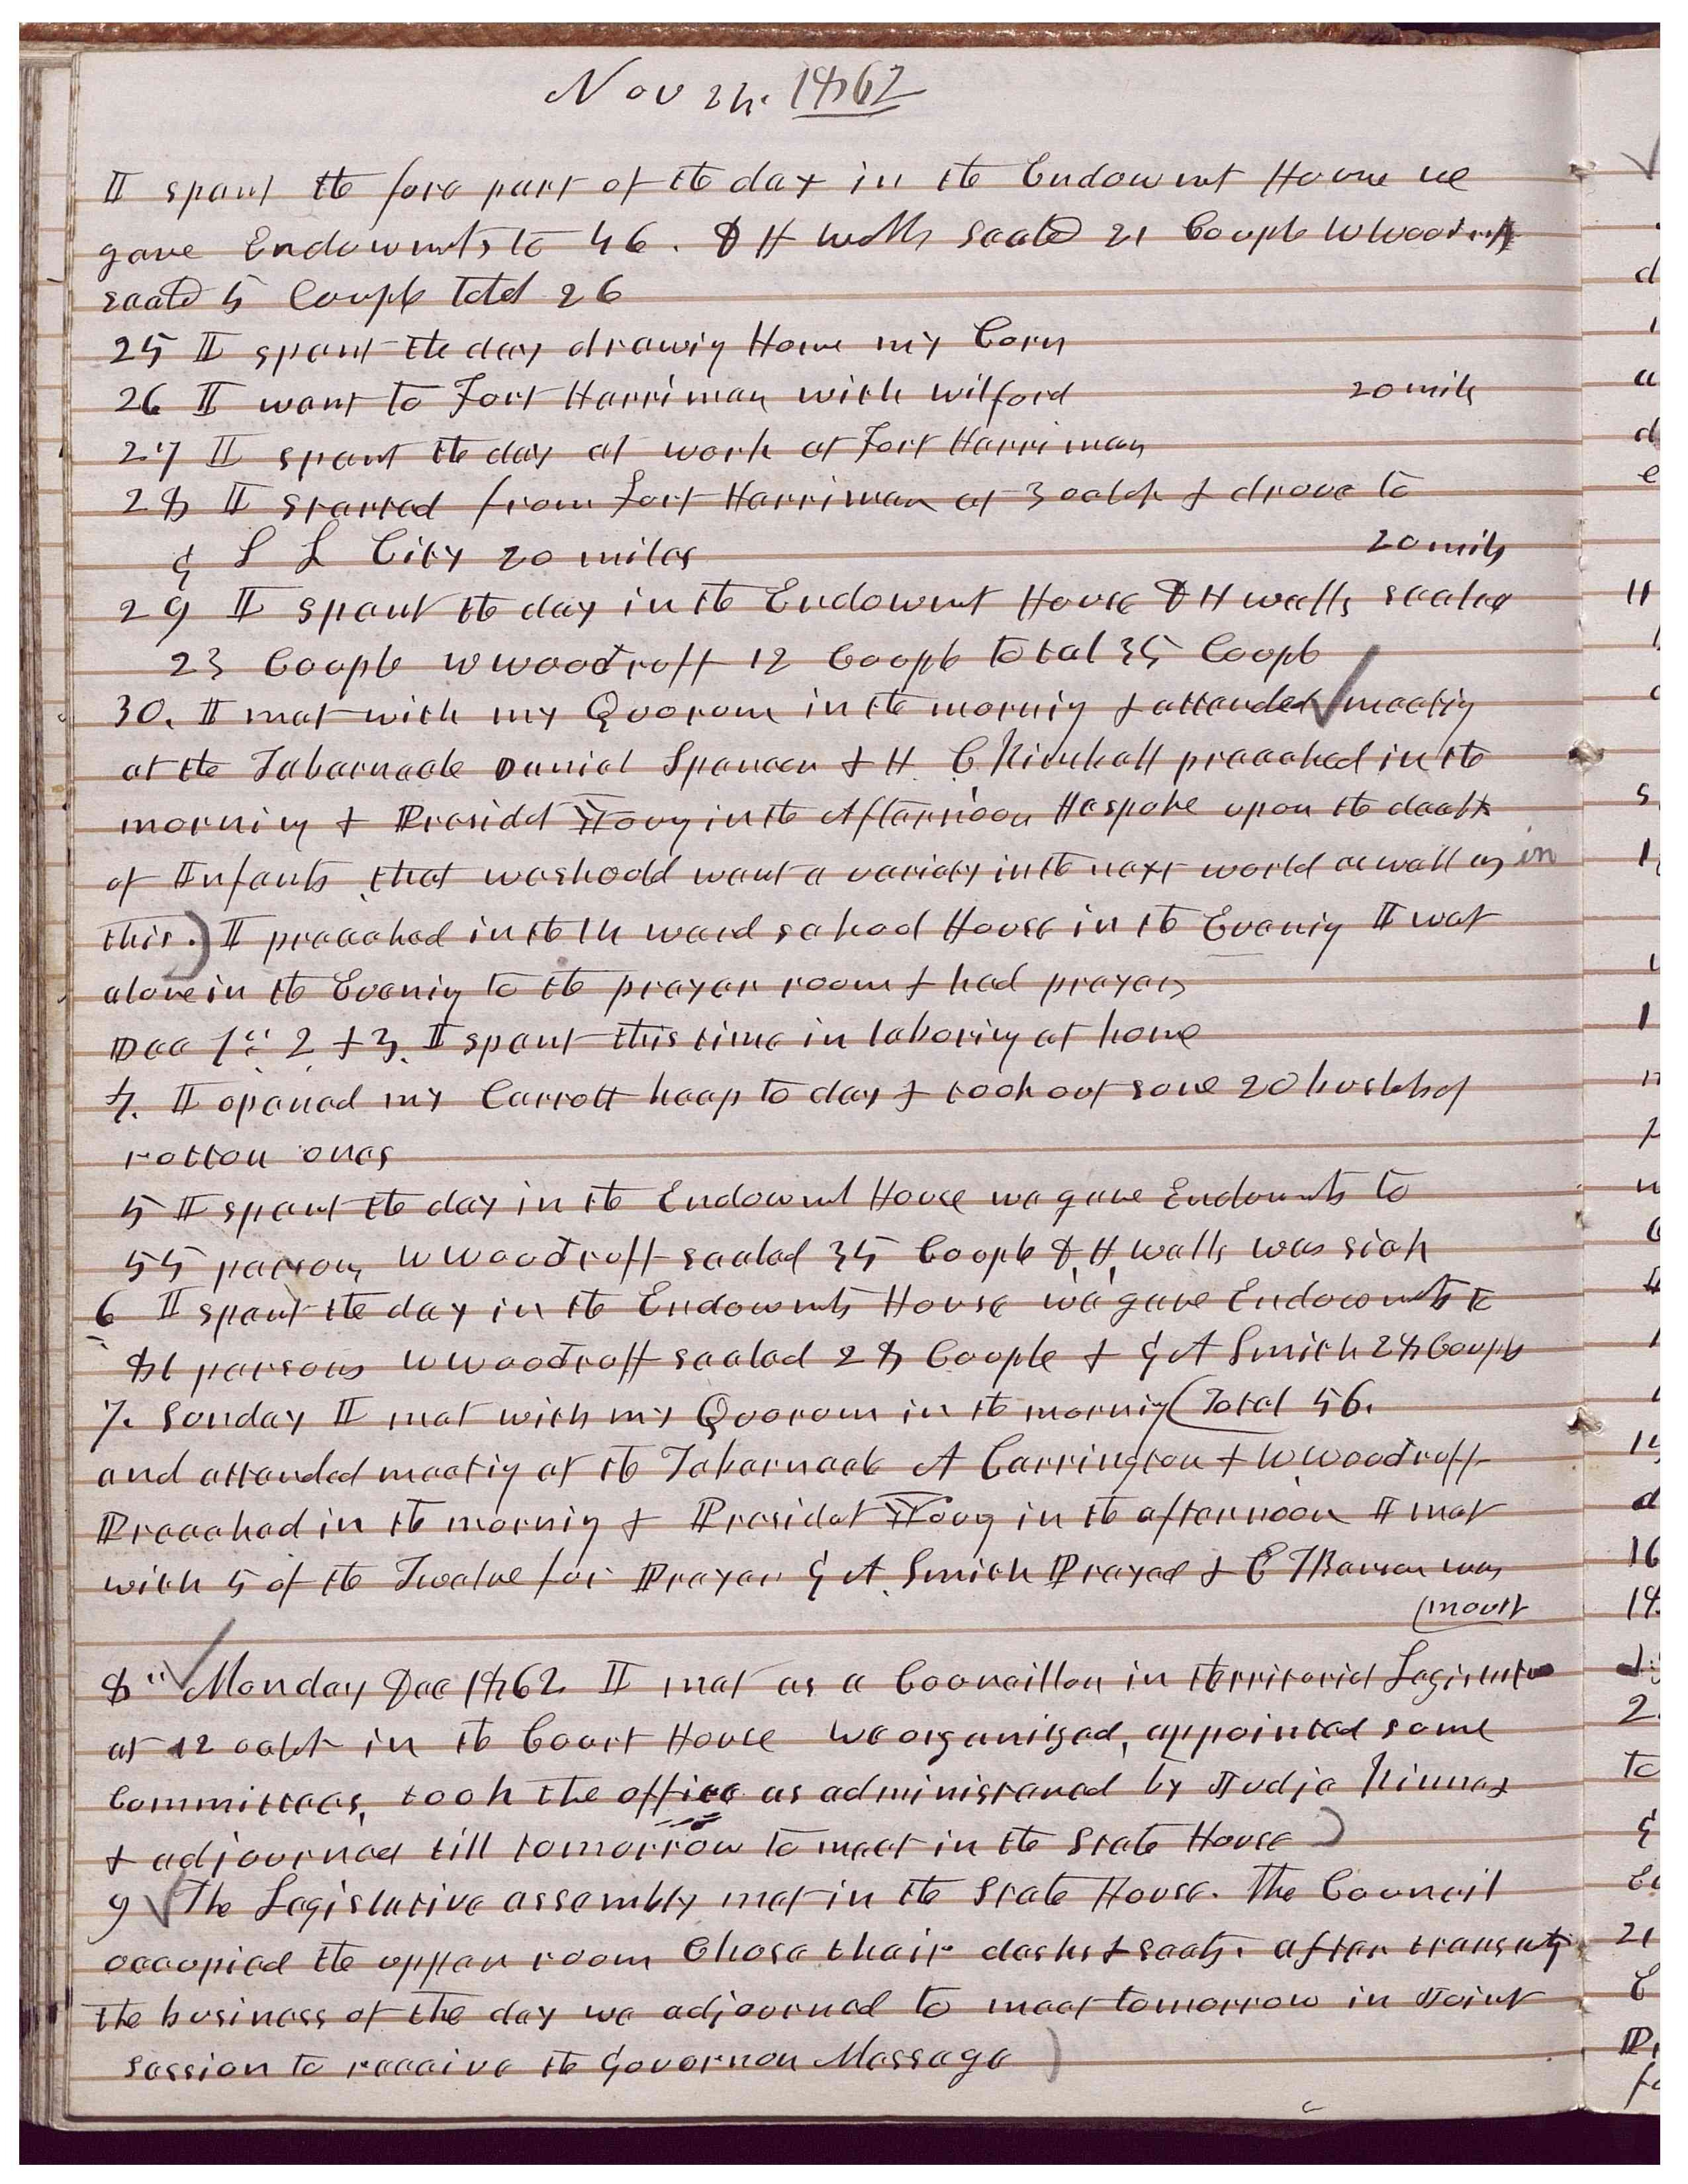 Nov 24. 1862
I spent the fore part of the day in the Endowmt House we
gave Endowmts to 46. D H Wells Sealed 21 Couple W Woodruff
sealed 5 Couple Total 26
25 I spent the day drawig Home my Corn
26 I went to Fort Harriman with Wilford 20 mils
27 I spent the day at work at Fort Harriman
28 I started from Fort Harriman at 3 oclok & drove to
G S L City 20 miles 20 mils
29 I spent the day in the Endowmt House D H Wells sealed
23 Couple W Woodruff 12 Couple total 35 Couple
30. I met with my Quorum in the mornig & attended meetig
at the Tabernacle Daniel Spencer & H C Kimball preached in the
morning & Presidet Young in the Afternoon He spoke upon the death
of Infants that we should want a variety in the next world as well as in
this.) I preached in the 14 ward school House in the Evenig I wet
alone in the Evenig to the prayer room & had prayers
Dec 1st 2 & 3. I spent this time in laborig at home
4. I opened my Carrott heap to day & took out some 20 bushels of
rotton ones
5 I spent the day in the Endowmt House we gave Endowmts to
55 persons W Woodruff sealed 35 Couple D. H. Wells was sick
6 I spent the day in the Endowmts House we gave Endowmts to
81 persons W Woodruff sealed 28 Couple & G A Smith 28 Couple
7. Sunday I met with my Quorum in the mornig (Total 56.
and attended meetig at the Tabernacle A Carrington & W Woodruff
Preached in the mornig & Presidet Young in the afternoon I met
with 5 of the Twelve for Prayer G A Smith Prayed & E T Benson was
(mouth
8" Monday Dec 1862 I met as a Councillor in territorial Legislature
at 12 oclok in the Court House We organized, appointed some
Committees, took the office as administered by Judge Kinney
& adjourned till tomorrow to meet in the State House)
9 The Legislative assembly met in the State House. The Council
occupied the upper room Chose their desks & seats. after transactig
the business of the day we adjourned to meet tomorrow in Joint
session to receive the Governor Message)